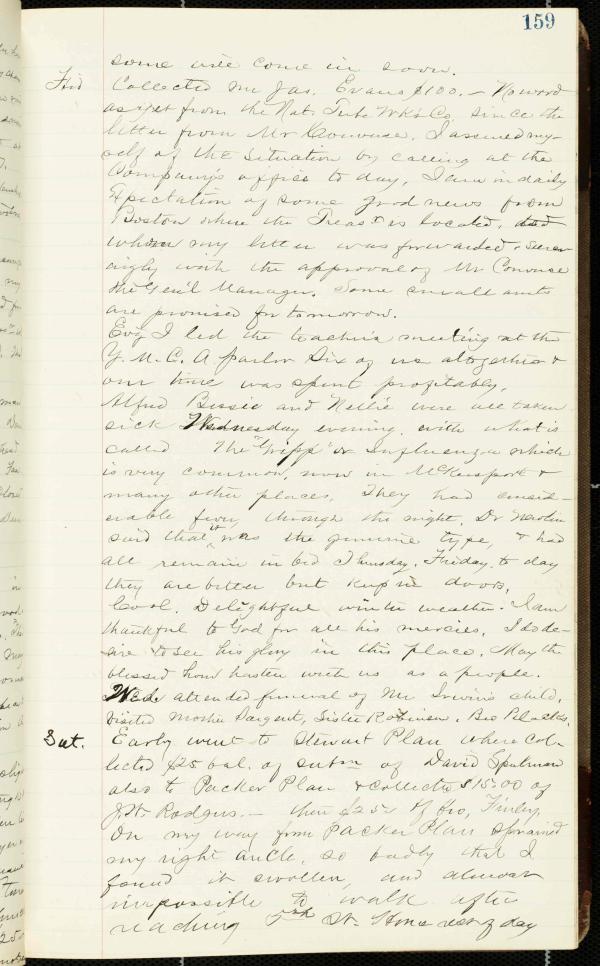 159
some will come in soon.
Frid Collected Mr Jas. Evans $100. – No word
as yet from the Nat. Tube Wk's Co. since the
letter from Mr Converse. I assured my-
self of the situation by calling at the
Company's office to day, I am in daily
Expectation of some good news from
Boston where the Treasr is located, and
whom my letter was forwarded &
with the approval of Mr Converse
the Gen'l Manager. Some small amts
are promised for tomorrow.
Ev'g I led the teacher's meeting at the
Y. M. C. A parlor Six of us altogether &
our time was spent profitably.
Alfred Bessie and Nellie were all taken
sick Wednesday evening with what is
called The "Gripp" or Influenza which
is very common, now in McKeesport &
many other places. They had consid-
erable fever through the night. Dr
said that it was the genuine type, & had
all remain in bed Thursday. Friday to day
they are better but kept in doors.
Cool. Delightful winter weather. I am
thankful to God for all his mercies. I do de-
sire to see his glory in this place. May the
blessed hour hasten with us as a people.
Wed. attended funeral of Mr Irwin's child.
Visited Mother Sargent, Sister Robinson, Bro
Sat. Early went to Stewart Plan where Col-
lected $25 bal. of subn of David
also to Packer Plan & collected $15.00 of
J. W. Rodgers. – then $25 of Geo, Finley,
On my way from Packer Plan sprained
my right ancle, so badly that I
found it swollen, and almost
impossible to walk after
reaching St. Home rest of day